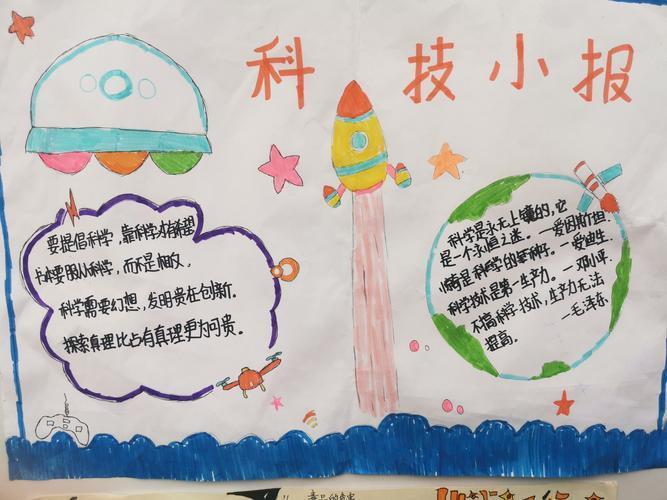 科技小报
要提倡科学，靠科学才有希望
而不是相反，
科学需要幻想，发明贵在创新。
探索真理比占有真理更为可贵。
科学是永无止境的，它
是一个永恒之迷。—爱因斯坦.
是科学的—爱迪生.
科学技术是第一生产力。—邓小平.
不搞科学技术，生产力无法
提高。
—毛泽东